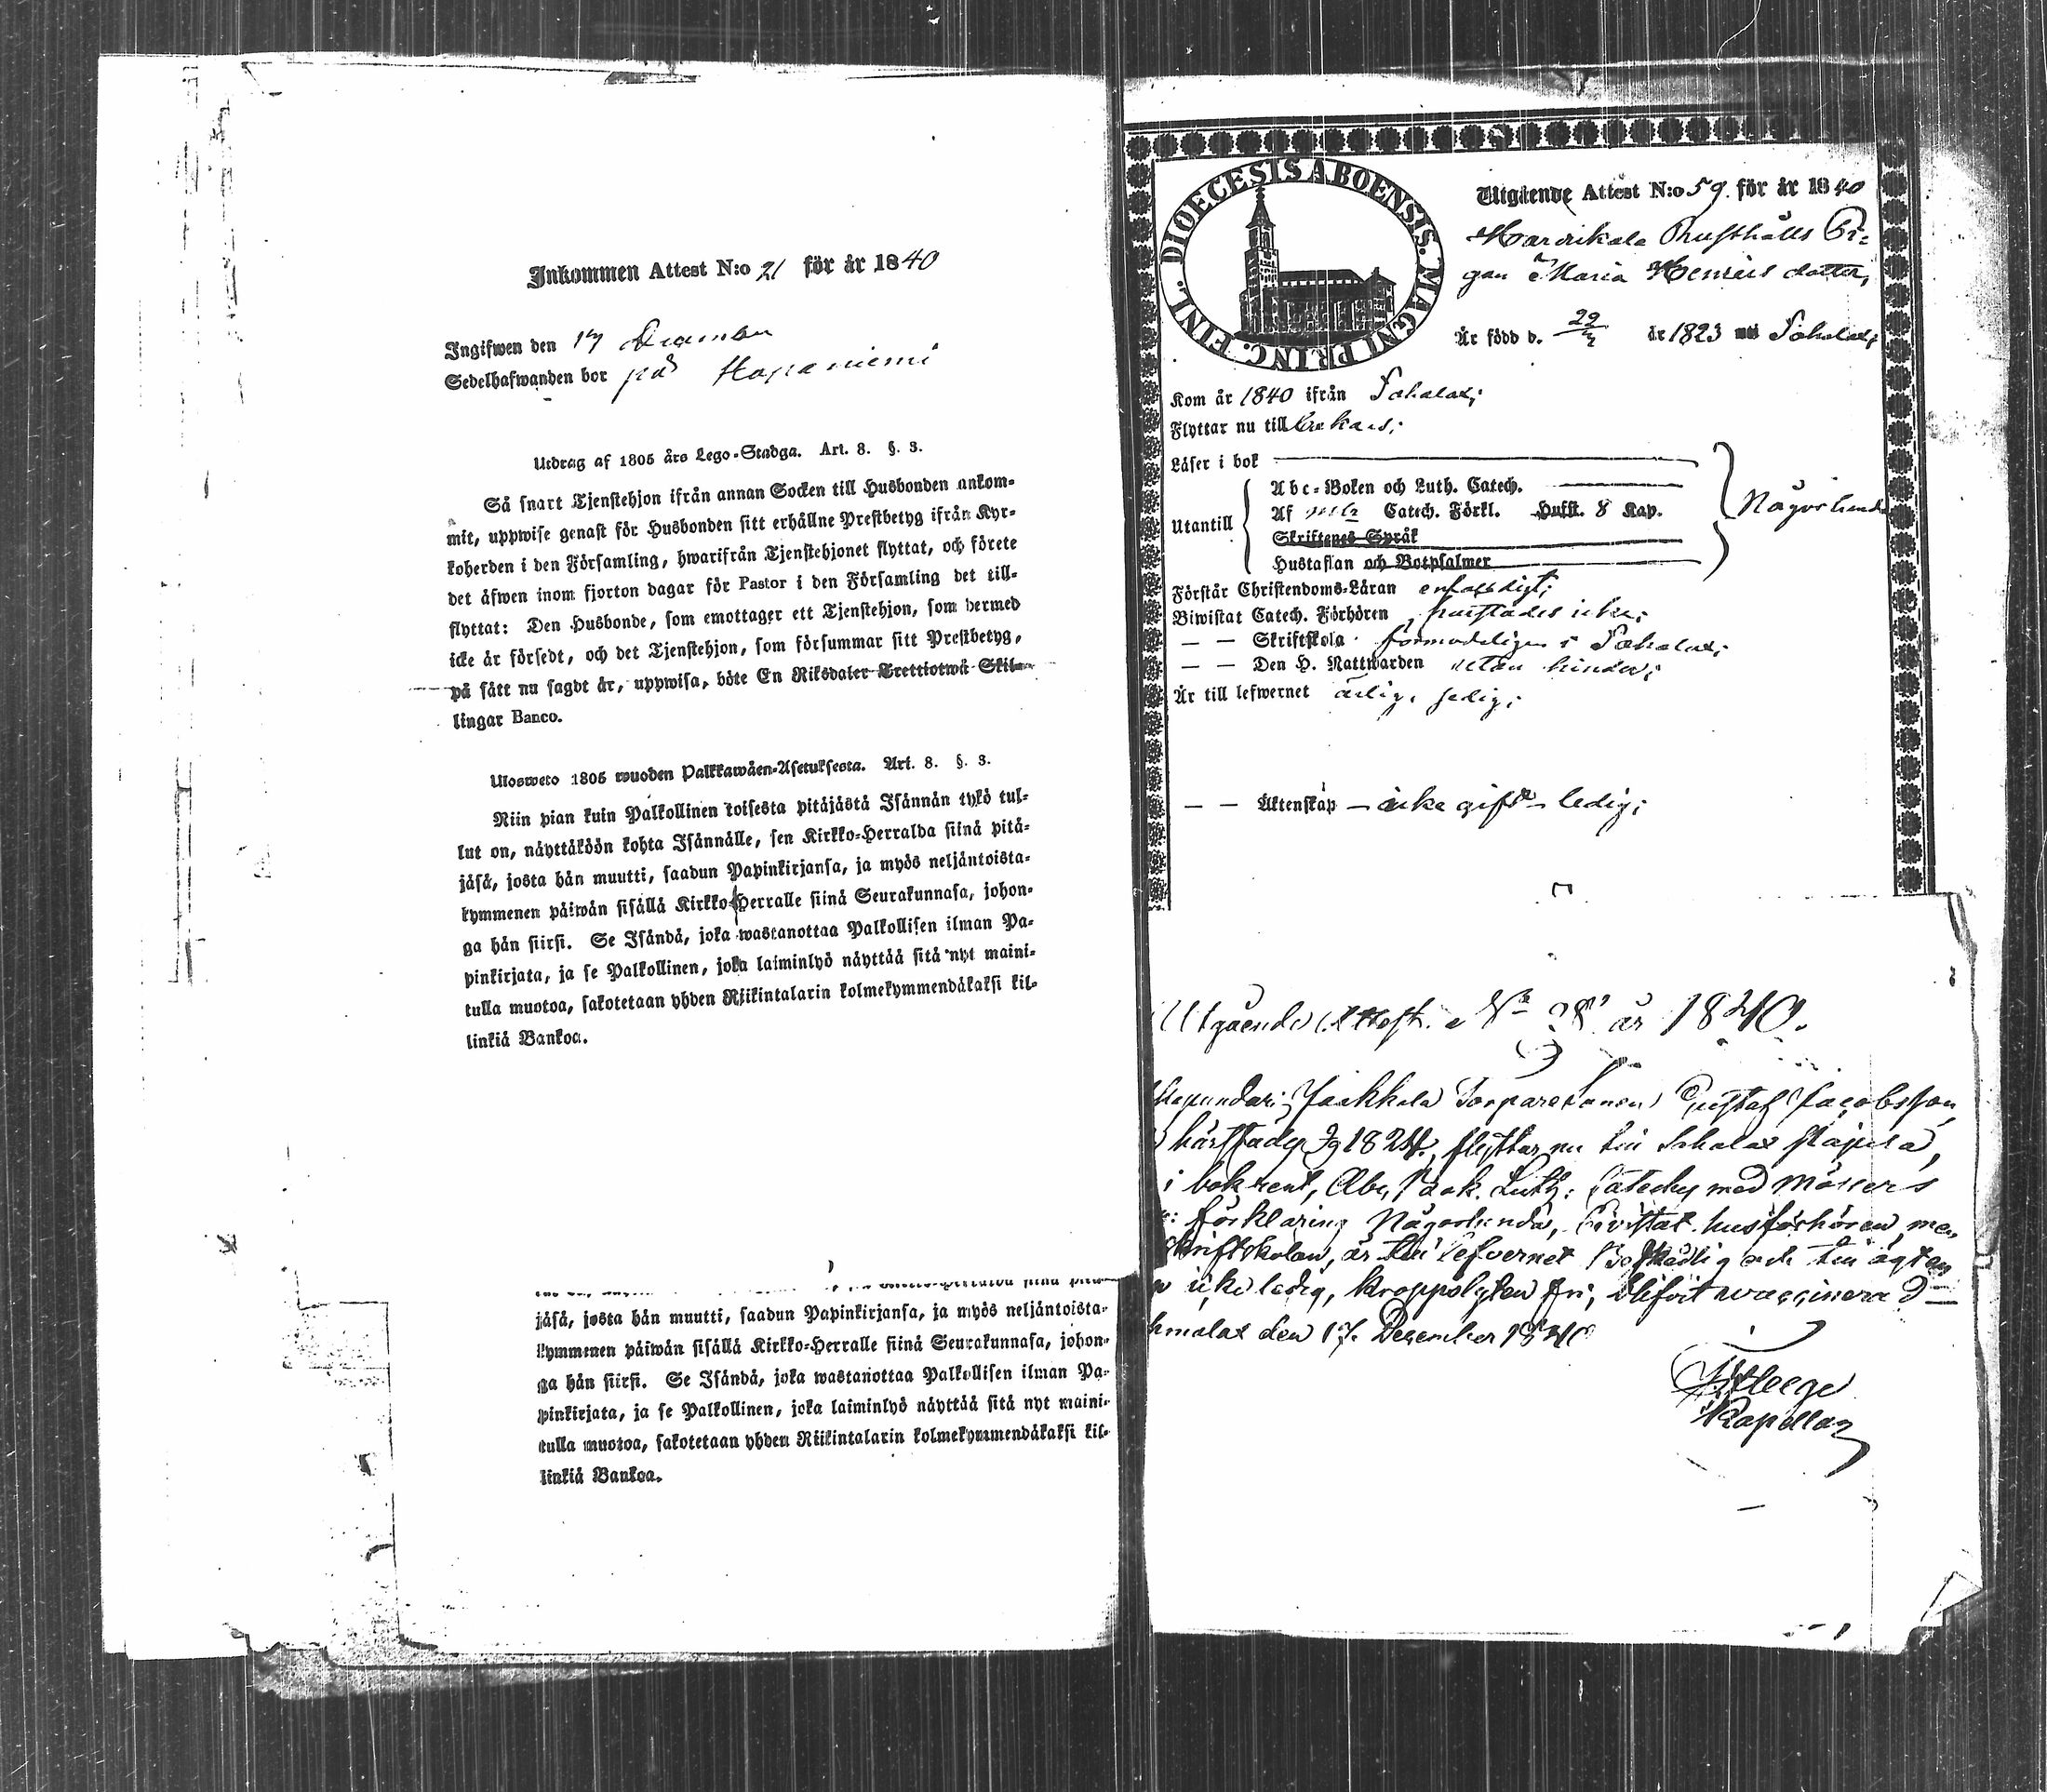 Inkommen Attest N:o 21 för år 1840
Ingifwen den 17 December
Sedelhafwanden bor på Hapaniemi
Utdrag af 1805 års Lego-Stadga. Art. 8. §. 3.
Så snart Tjenstehjon ifrån annan Socken till Husbonden ankom-
mit, uppwise genast för Husbonden sitt erhållne Prestbetyg ifrån Kyr-
koherden i den Församling, hwarifrån Tjenstehjonet flyttat, och förete
det äfwen inom fjorton dagar för Pastor i den Församling det till-
flyttat: Den Husbonde, som emottager ett Tjenstehjon, som dermed
icke är försedt, och det Tjenstehjon, som försummar sitt Prestbetyg,
på sätt nu sagdt är, uppwisa, böte En Riksdaler Trettiotwå Skil-
lingar Banco.
Ulosweto 1805 wuoden Palkkawäen-Asetuksesta. Art. 8. §. 3.
Niin pian kuin Palkollinen toisesta pitäjästä Isännän tykö tul-
lut on, näyttäköön kohta Isännälle, sen Kirkko-Herralda siinä pitä-
jäsä, josta hän muutti, saadun Papinkirjansa, ja myös neljäntoista-
kymmenen päiwän sisällä Kirkko-Herralle siinä Seurakunnasa, johon-
ga hän siirsi. Se Isändä, joka wastanottaa Palkollisen ilman Pa-
pinkirjata, ja se Palkollinen, joka laiminlyö näyttää sitä nyt maini-
tulla muotoa, sakotetaan yhden Riikintalarin kolmekymmendäkaksi kil-
linkiä Bankoa.
jäsä, josta hän muutti, saadun Papinkirjansa, ja myös neljäntoista-
kymmenen päiwän sisällä Kirkko-Herralle siinä Seurakunnasa, johon-
ga hän siirsi. Se Isändä, joka wastanottaa Palkollisen ilman Pa-
pinkirjata, ja se Palkollinen, joka laiminlyö näyttää sitä nyt maini-
tulla muotoa, sakotetaan yhden Riikintalarin kolmekymmendäkaksi kil-
linkiä Bankoa.
DIOECESIS ABOENSIS. MAGNI PRINC. FINL.
Utgående Attest N:o 59. för år 1840
Rusthålls Pi-
gan Maria Henricsdotter,
Är född d. 29 år 1823 Sahalax;
Kom år 1840 ifrån Sahalax;
Flyttar nu till
Läser i bok
Abc-Boken och Luth. Catech.
Utantill Af Catech. Förkl. Husst. 8 Kap. Någorlunda
Skriftenes Språk
Hustaflan och Botpsalmer
Förstår Christendoms-Läran enfaldigt;
Biwistat Catech. Förhören icke;
— — Skriftskola förmodeligen i Sahalax;
— — Den H. Nattwarden utan hinder;
Är till lefwernet ärlig, sedig;
— — Äktenskap — icke gift — ledig;
Utgående Attest. N:o 28 år 1840.
Jaakkola Torparesonen Gustaf Jacobsson,
härstädes 1824, flyttar nu till Sahalax
i bok rent, Abc bok. Luth: Cateches med Möllers
förklaring Någorlunda, Bivistat husförhören, men
skriftskolan, är till lefvernet Beskedlig och till ägten-
icke ledig, kroppslyten fri, blifvit vaccinerad —
den 17 December 1840
Kapellan